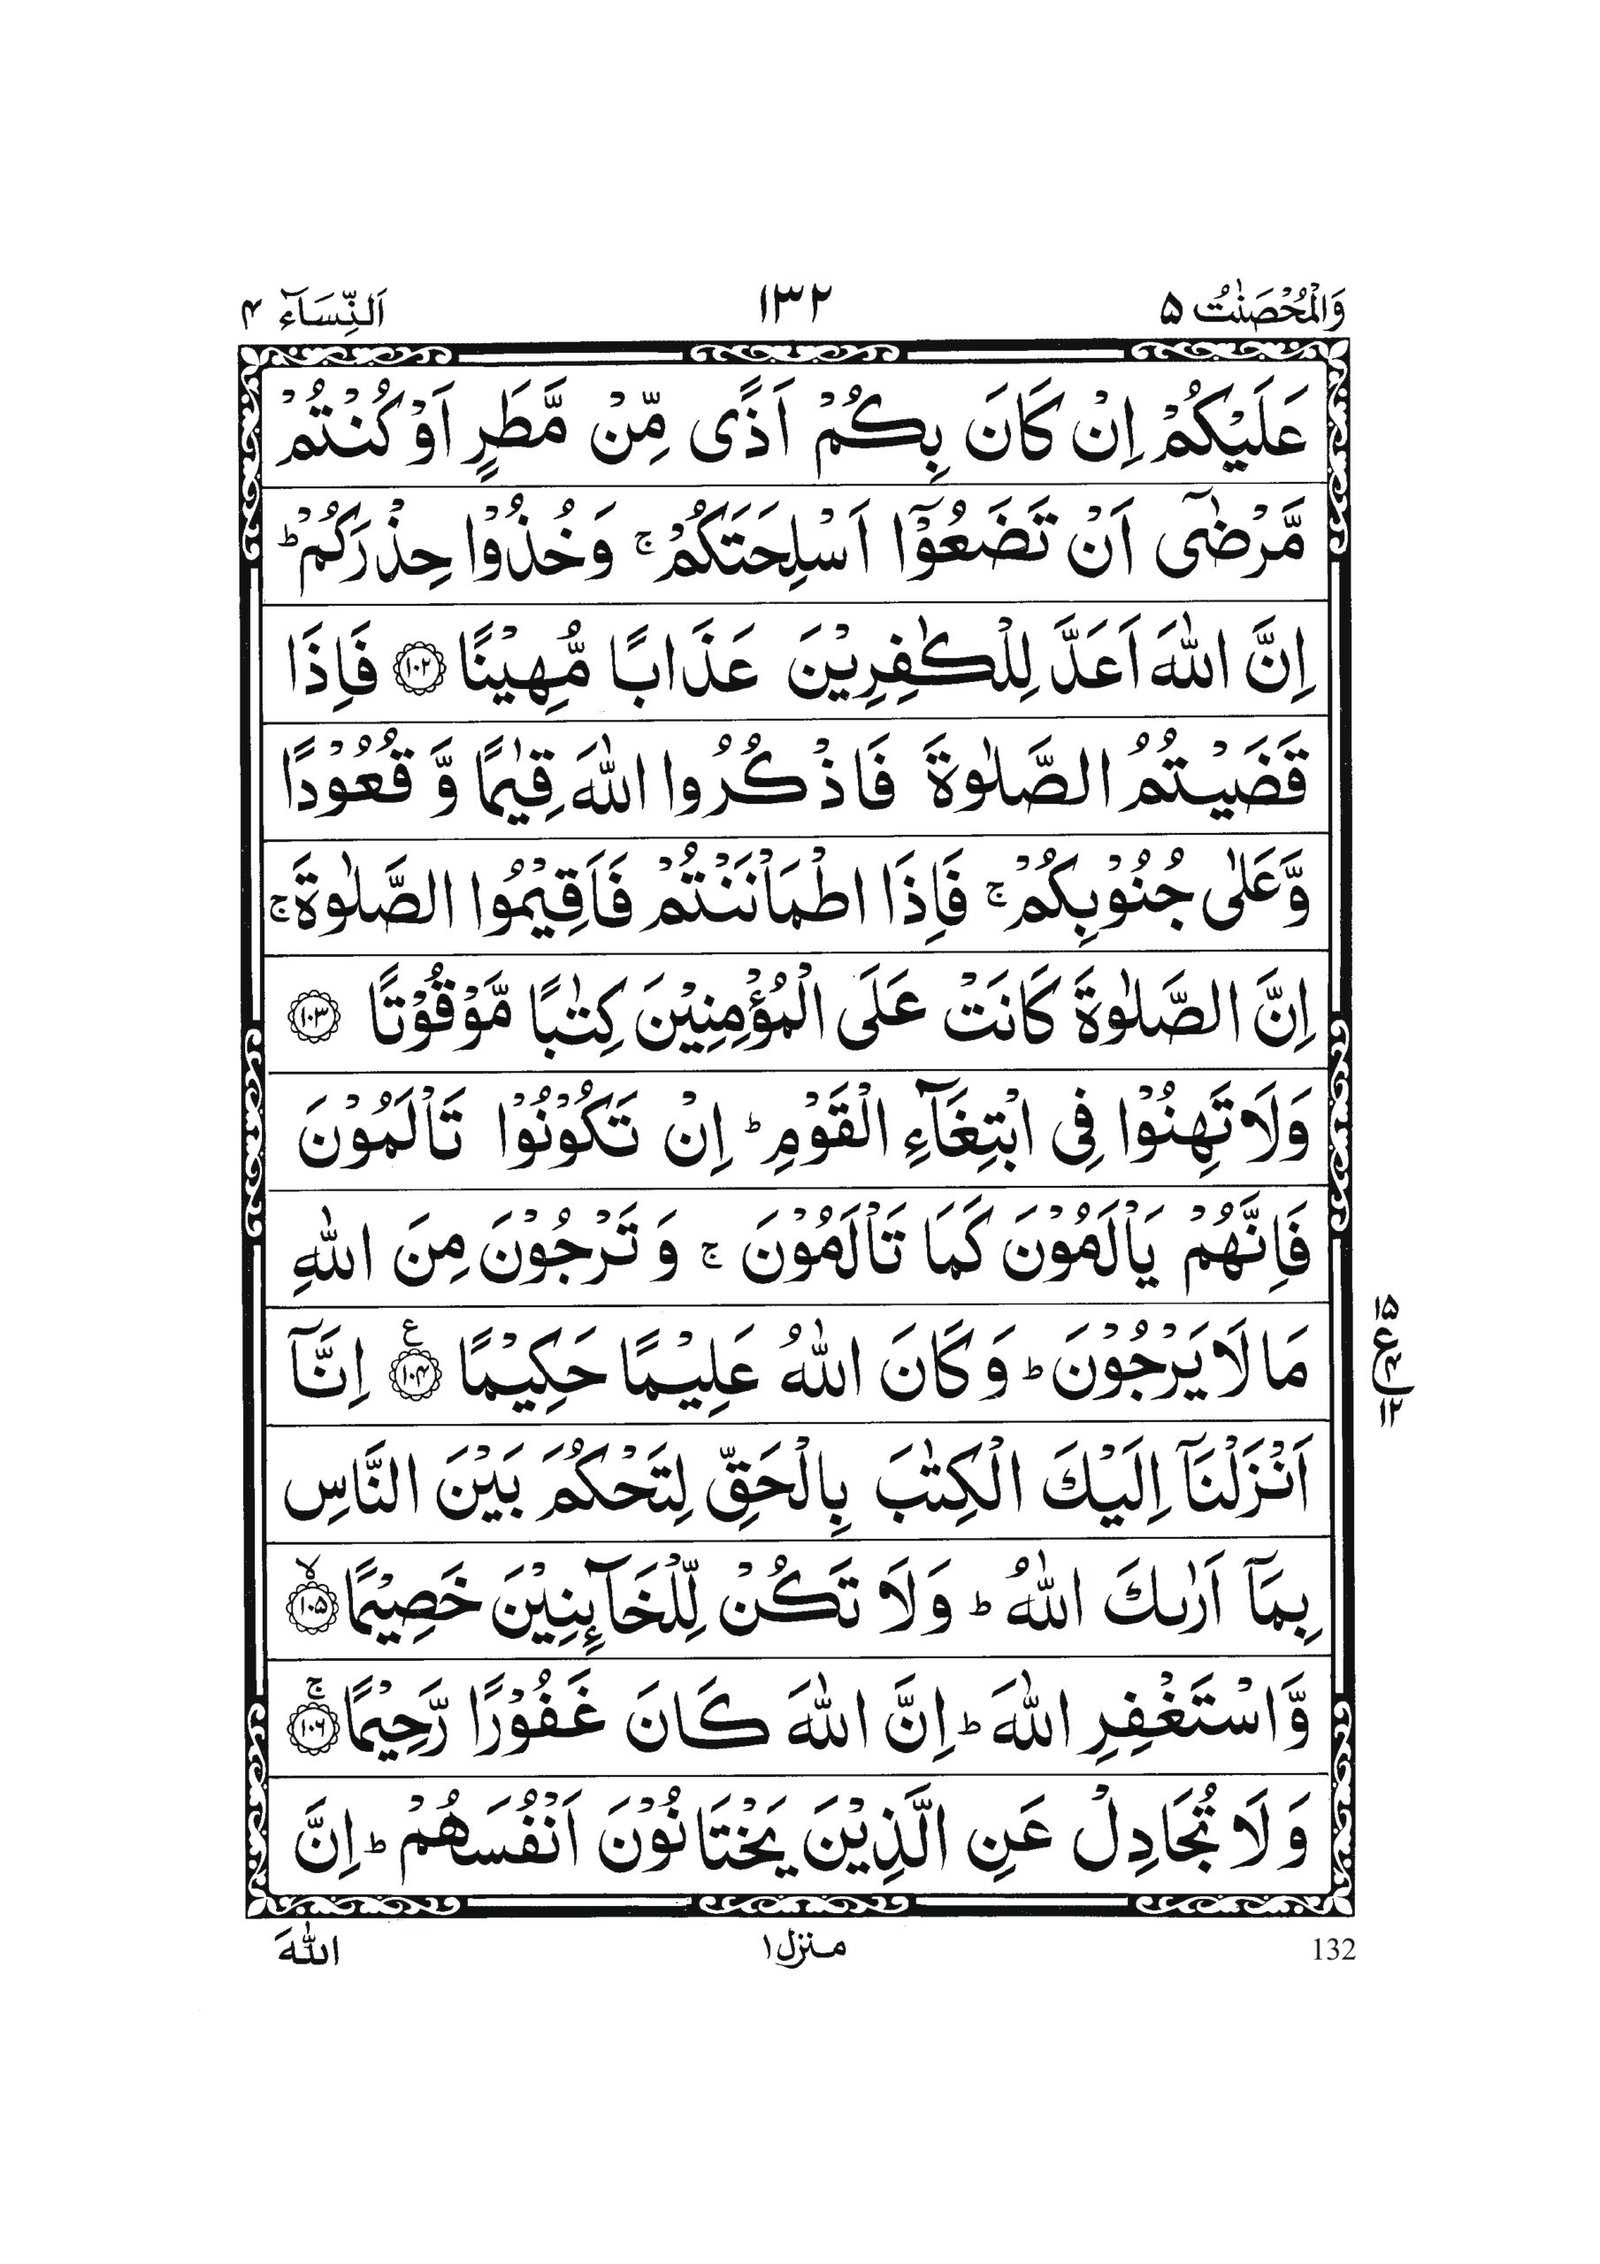 وَالْمُحْصَنٰتُ ۵ ۱۳۲ اَلنِّسَآء ۴
عَلَيْكُمْ اِنْ كَانَ بِكُمْ اَذًى مِّنْ مَّطَرٍ اَوْ كُنْتُمْ
مَّرْضٰٓى اَنْ تَضَعُوْٓا اَسْلِحَتَكُمْ ۚ وَخُذُوْا حِذْرَكُمْ ؕ
اِنَّ اللّٰهَ اَعَدَّ لِلْكٰفِرِيْنَ عَذَابًا مُّهِيْنًا ۱۰۲ فَاِذَا
قَضَيْتُمُ الصَّلٰوةَ فَاذْكُرُوا اللّٰهَ قِيٰمًا وَّ قُعُوْدًا
وَّعَلٰى جُنُوْبِكُمْ ۚ فَاِذَا اطْمَاْنَنْتُمْ فَاَقِيْمُوا الصَّلٰوةَ ۚ
اِنَّ الصَّلٰوةَ كَانَتْ عَلَى الْمُؤْمِنِيْنَ كِتٰبًا مَّوْقُوْتًا ۱۰۳
وَلَا تَهِنُوْا فِى ابْتِغَآءِ الْقَوْمِ ؕ اِنْ تَكُوْنُوْا تَاْلَمُوْنَ
فَاِنَّهُمْ يَاْلَمُوْنَ كَمَا تَاْلَمُوْنَ ۚ وَ تَرْجُوْنَ مِنَ اللّٰهِ
مَا لَا يَرْجُوْنَ ؕ وَ كَانَ اللّٰهُ عَلِيْمًا حَكِيْمًا ۱۰۴ ع اِنَّآ
۱۵ ع ۱۲
اَنْزَلْنَآ اِلَيْكَ الْكِتٰبَ بِالْحَقِّ لِتَحْكُمَ بَيْنَ النَّاسِ
بِمَآ اَرٰىكَ اللّٰهُ ؕ وَلَا تَكُنْ لِّلْخَآىِٕنِيْنَ خَصِيْمًا ۱۰۵ ۙ
وَّاسْتَغْفِرِ اللّٰهَ ؕ اِنَّ اللّٰهَ كَانَ غَفُوْرًا رَّحِيْمًا ۱۰۶ ۚ
وَلَا تُجَادِلْ عَنِ الَّذِيْنَ يَخْتَانُوْنَ اَنْفُسَهُمْ ؕ اِنَّ
132 منزل ۱ اللّٰهَ